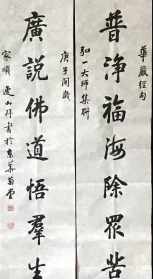 華嚴經句
普淨福海除眾苦
弘一大師集聯
廣說佛道悟羣生
庚子閏歲